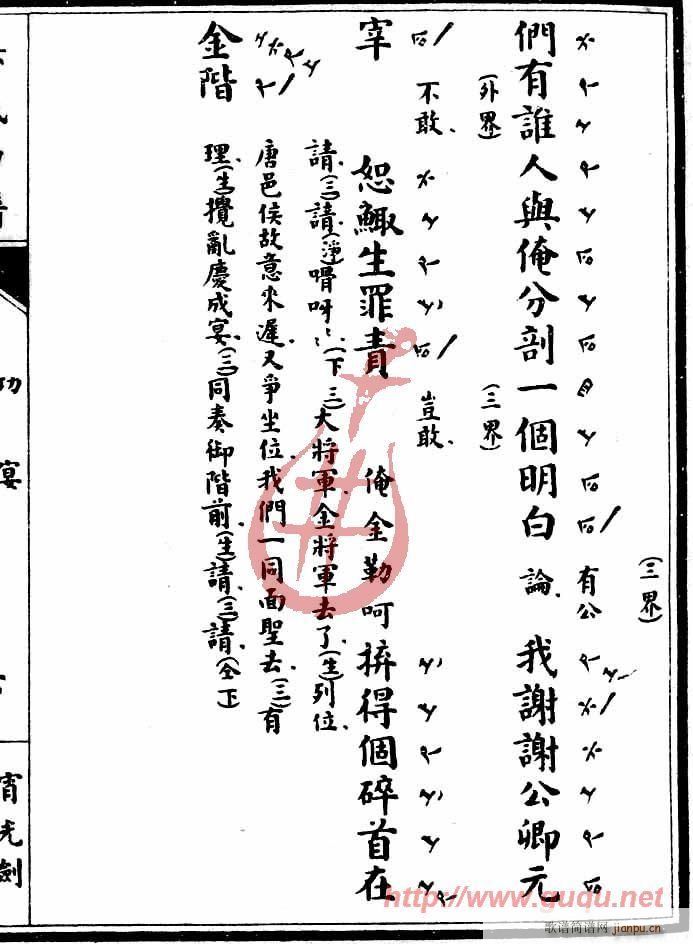 (三界)
有公
們有誰人與俺分剖一個明白 論、 我謝謝公卿元
(外界) (三界)
不敢、 豈敢、
宰 恕鯫生罪責 俺金勒呵拚得個碎首在
請、(三)請、(淨)呀(下 三)大將軍、金將軍去了、(生)列位、
唐邑侯故意來遲、又爭坐位、我們一同面聖去、(三)有
金階 理、(生)攪亂慶成宴、(三)同奏御階前、(生)請、(三)請、(仝下)
功宴
宵光劍
http://www.guqu.net
歌谱简谱网
jianpu.cn